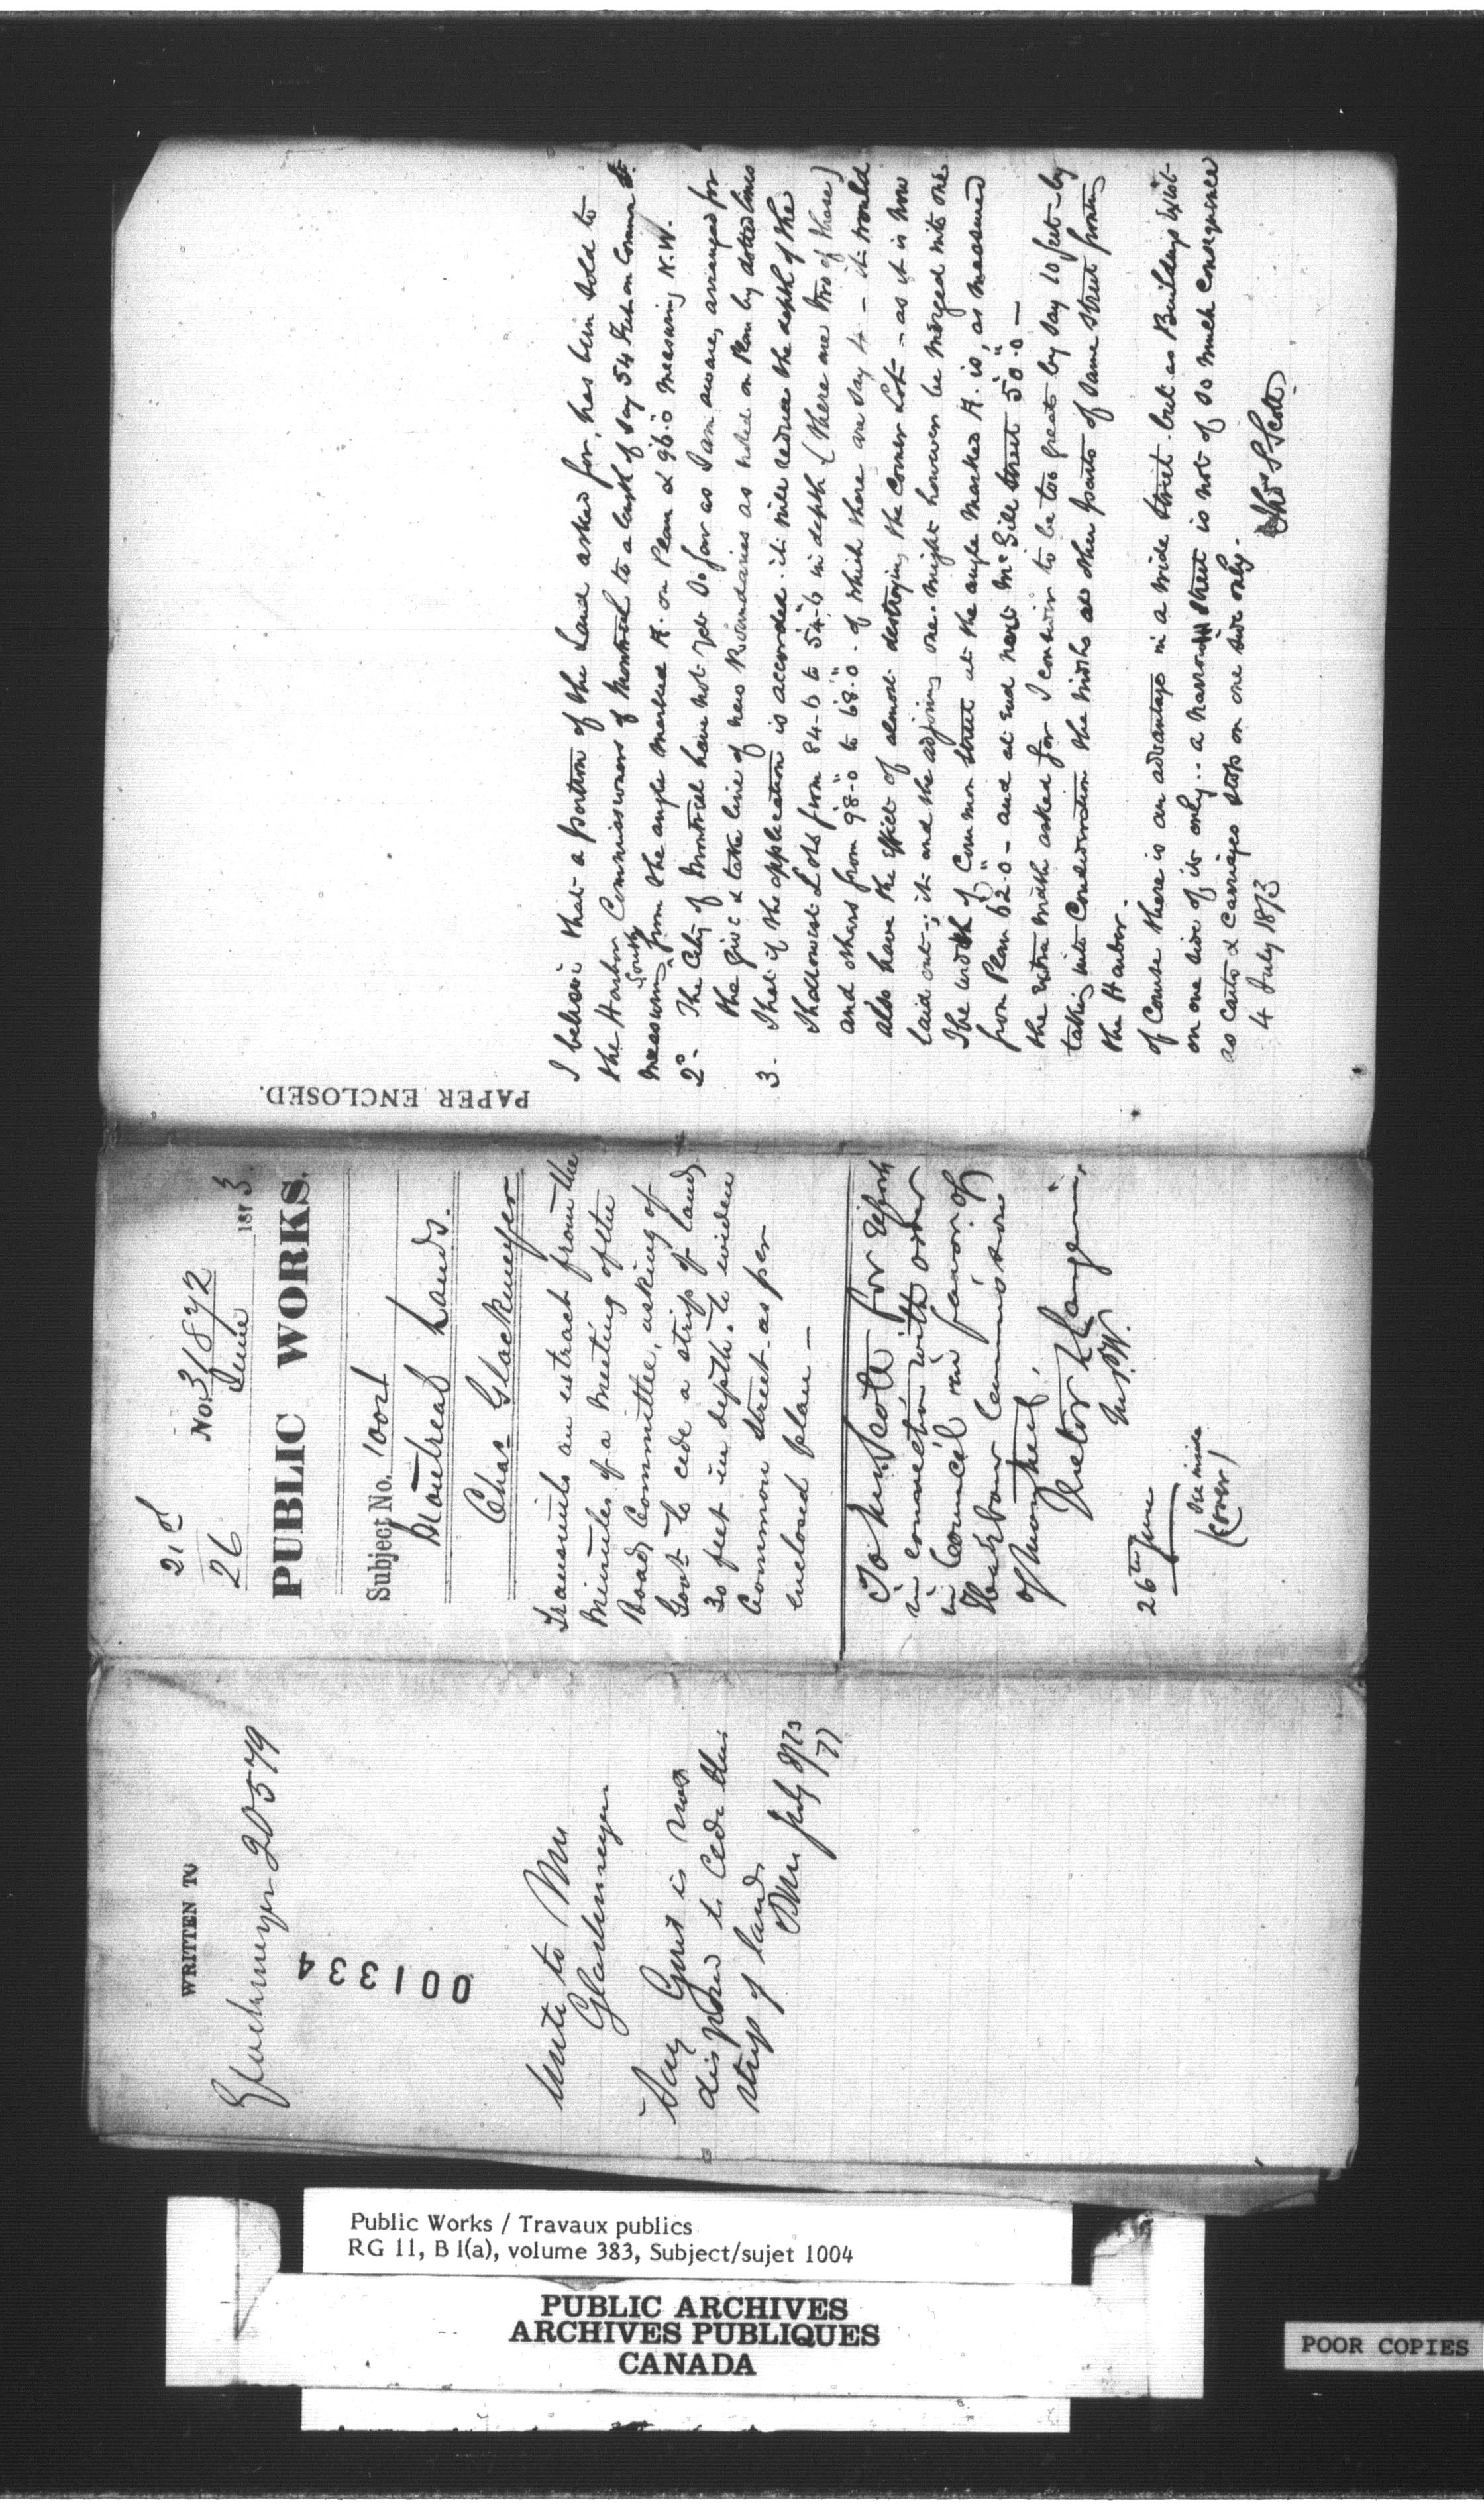 WRITTEN TO
Glackmeyer 20579
001334
Write to Mr.
Glackmeyer
Say Govt is not
disposed to cede this
strip of land
July 8/73
21st
26 No. 31872
June 1873
PUBLIC WORKS.
Subject No. 1004
Montreal Lands.
Chas Glackmeyer
Transmits an extract from the
Minutes of a Meeting of the
Road Committee, asking of
Govt to cede a strip of land
30 feet in depth to widen
Common Street as per
enclosed plan —
To Mr. Scott for report
in connection with order
in Council in favor of
Harbour Commissioners
of Montreal.
Hector L. Langevin,
M.P.W.
26th June
See inside
(Cover)
PAPER ENCLOSED.
I believe that a portion of the Land asked for, has been sold to
the Harbor Commissioners of Montreal to a length of say 54 feet on Common St.
measuring South from the angle marked A. on Plan & 96.0 measuring N.W.
2o- The City of Montreal have not yet so far as I am aware, arranged for
the & take line of new Boundaries as noted on Plan by dotted lines
3- That if the application is accorded it will reduce the depth of the
Shallowest Lots from 84-6 to 54-6 in depth (there are two of these)
and others from 98-0 to 68-0 - of which there are say 4 - it would
also have the effect of almost destroying the corner Lot - as it is now
laid out; it and the adjoining one might however be merged into one
The width of Common Street at the angle marked A. is, as measured
from Plan 62.0 - and at End next McGill Street 50.0 —
the extra width asked for I consider to be too great by say 10 feet - by
taking into Consideration the widths at other parts of same Street fronting
the Harbor.
Of Course there is an advantage in a wide Street but as Buildings Exist
on one side of it only.. a narrow Street is not of so much Consequence
as Carts & Carriages stop on one side only.
4 July 1873 Thos S Scott
Public Works / Travaux publics
RG 11, B 1(a), volume 383, Subject/sujet 1004
PUBLIC ARCHIVES
ARCHIVES PUBLIQUES
CANADA
POOR COPIES